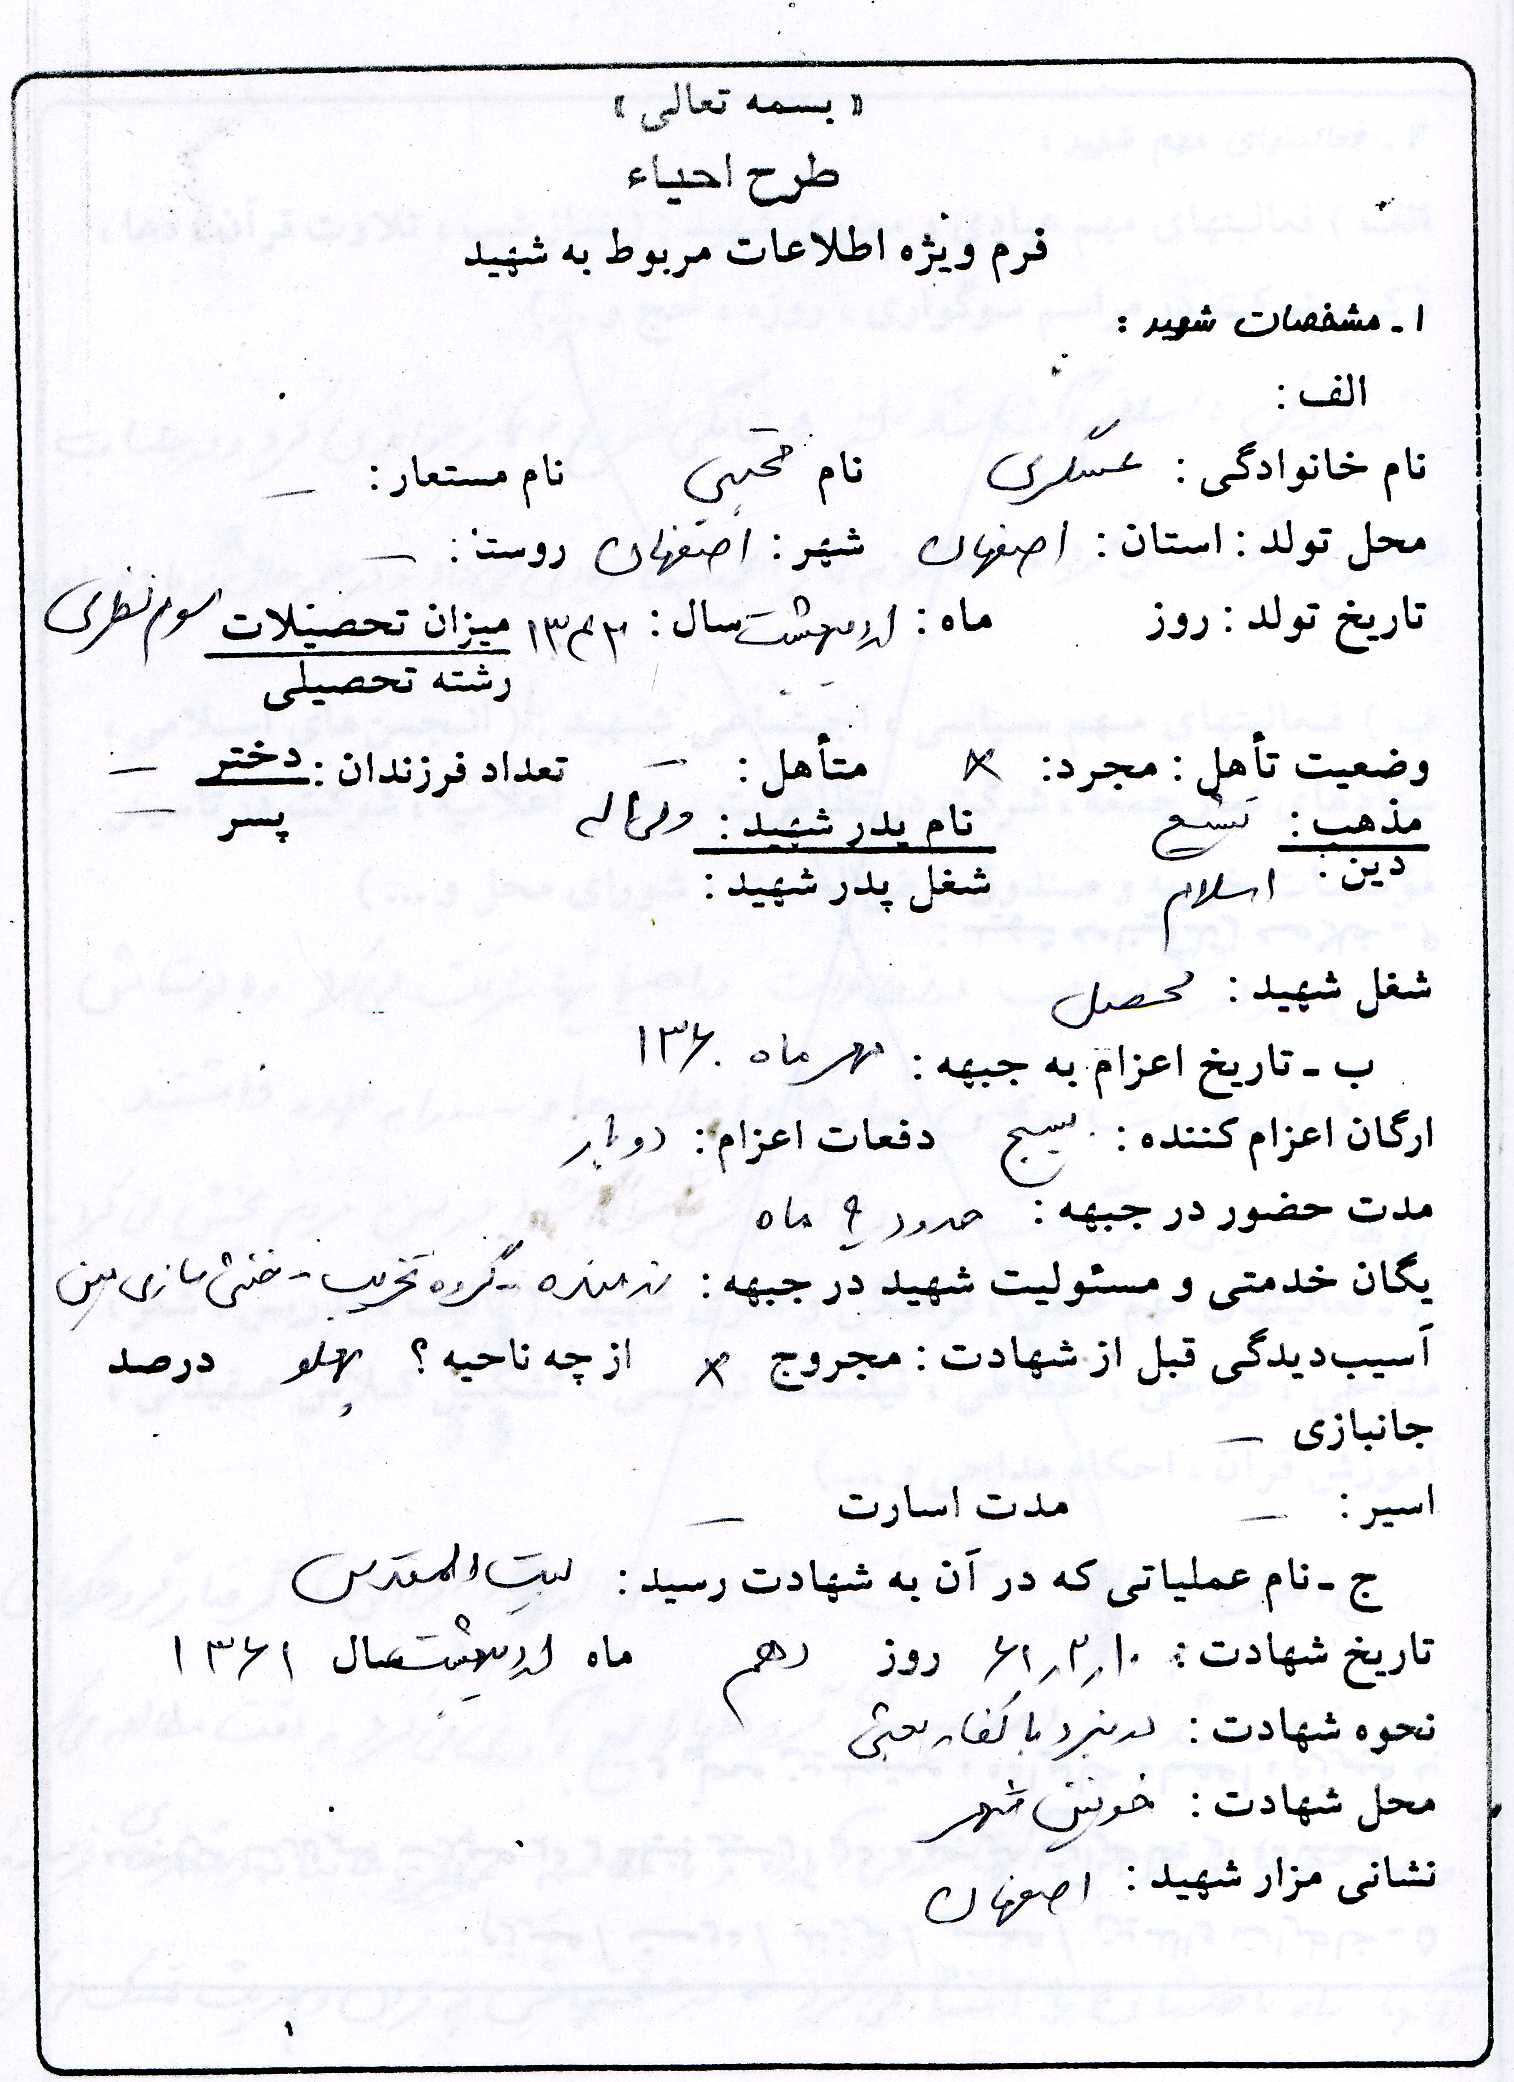 « بسمه تعالی »
طرح احیاء
فرم ویژه اطلاعات مربوط به شهید
۱ ـ مشخصات شهید :
الف :
نام خانوادگی : عسگری نام مجتبی نام مستعار : –
محل تولد : استان : اصفهان شهر : اصفهان روستا : –
تاریخ تولد : روز ماه : اردیبهشت سال : ۱۳۴۳ میزان تحصیلات سوم نظری
رشته تحصیلی
وضعیت تأهل : مجرد : × متأهل : – تعداد فرزندان : دختر –
مذهب : تشیع نام پدر شهید : ولی‌اله پسر –
دین : اسلام شغل پدر شهید :
شغل شهید : محصل
ب ـ تاریخ اعزام به جبهه : مهر ماه ۱۳۶۰
ارگان اعزام کننده : بسیج دفعات اعزام : دو بار
مدت حضور در جبهه : حدود ۹ ماه
یگان خدمتی و مسئولیت شهید در جبهه : رزمنده - گروه تخریب - خنثی سازی مین
آسیب‌دیدگی قبل از شهادت : مجروح × از چه ناحیه ؟ پهلو درصد
جانبازی –
اسیر : – مدت اسارت –
ج ـ نام عملیاتی که در آن به شهادت رسید : بیت المقدس
تاریخ شهادت : ۶۱٫۲٫۱۰ روز دهم ماه اردیبهشت سال ۱۳۶۱
نحوه شهادت : در نبرد با کفار بعثی
محل شهادت : خونین شهر
نشانی مزار شهید : اصفهان
۱